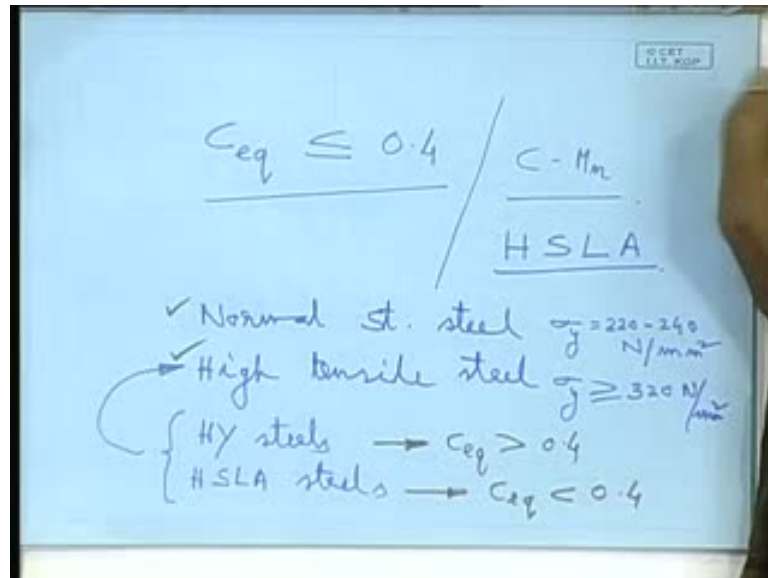 © CET
I.I.T. KGP
Ceq ≤ 0.4 / C-Mn
HSLA
✓ Normal St. steel σy = 220-240 N/mm²
✓ High tensile steel σy ≥ 320 N/mm²
HY steels → Ceq > 0.4
HSLA steels → Ceq < 0.4